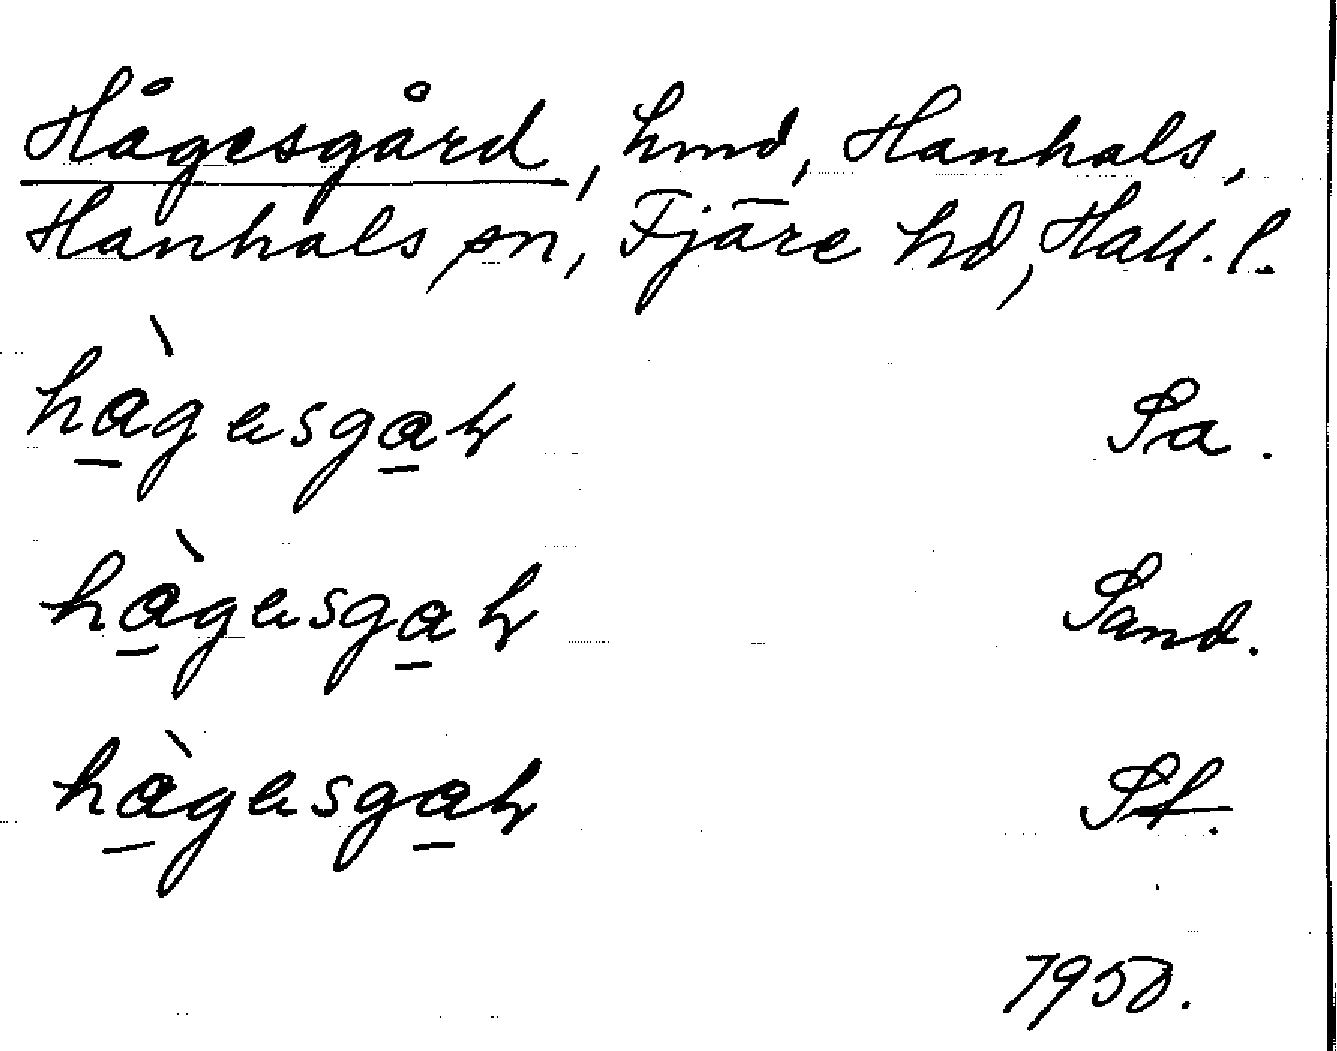 Hågesgård, hmd, Hanhals,
Hanhals sn, Fjäre hd, Hall. l.
hàgesgaꝛ Sa.
hàgesgaꝛ Sand.
hàgesgaꝛ St.
1950.